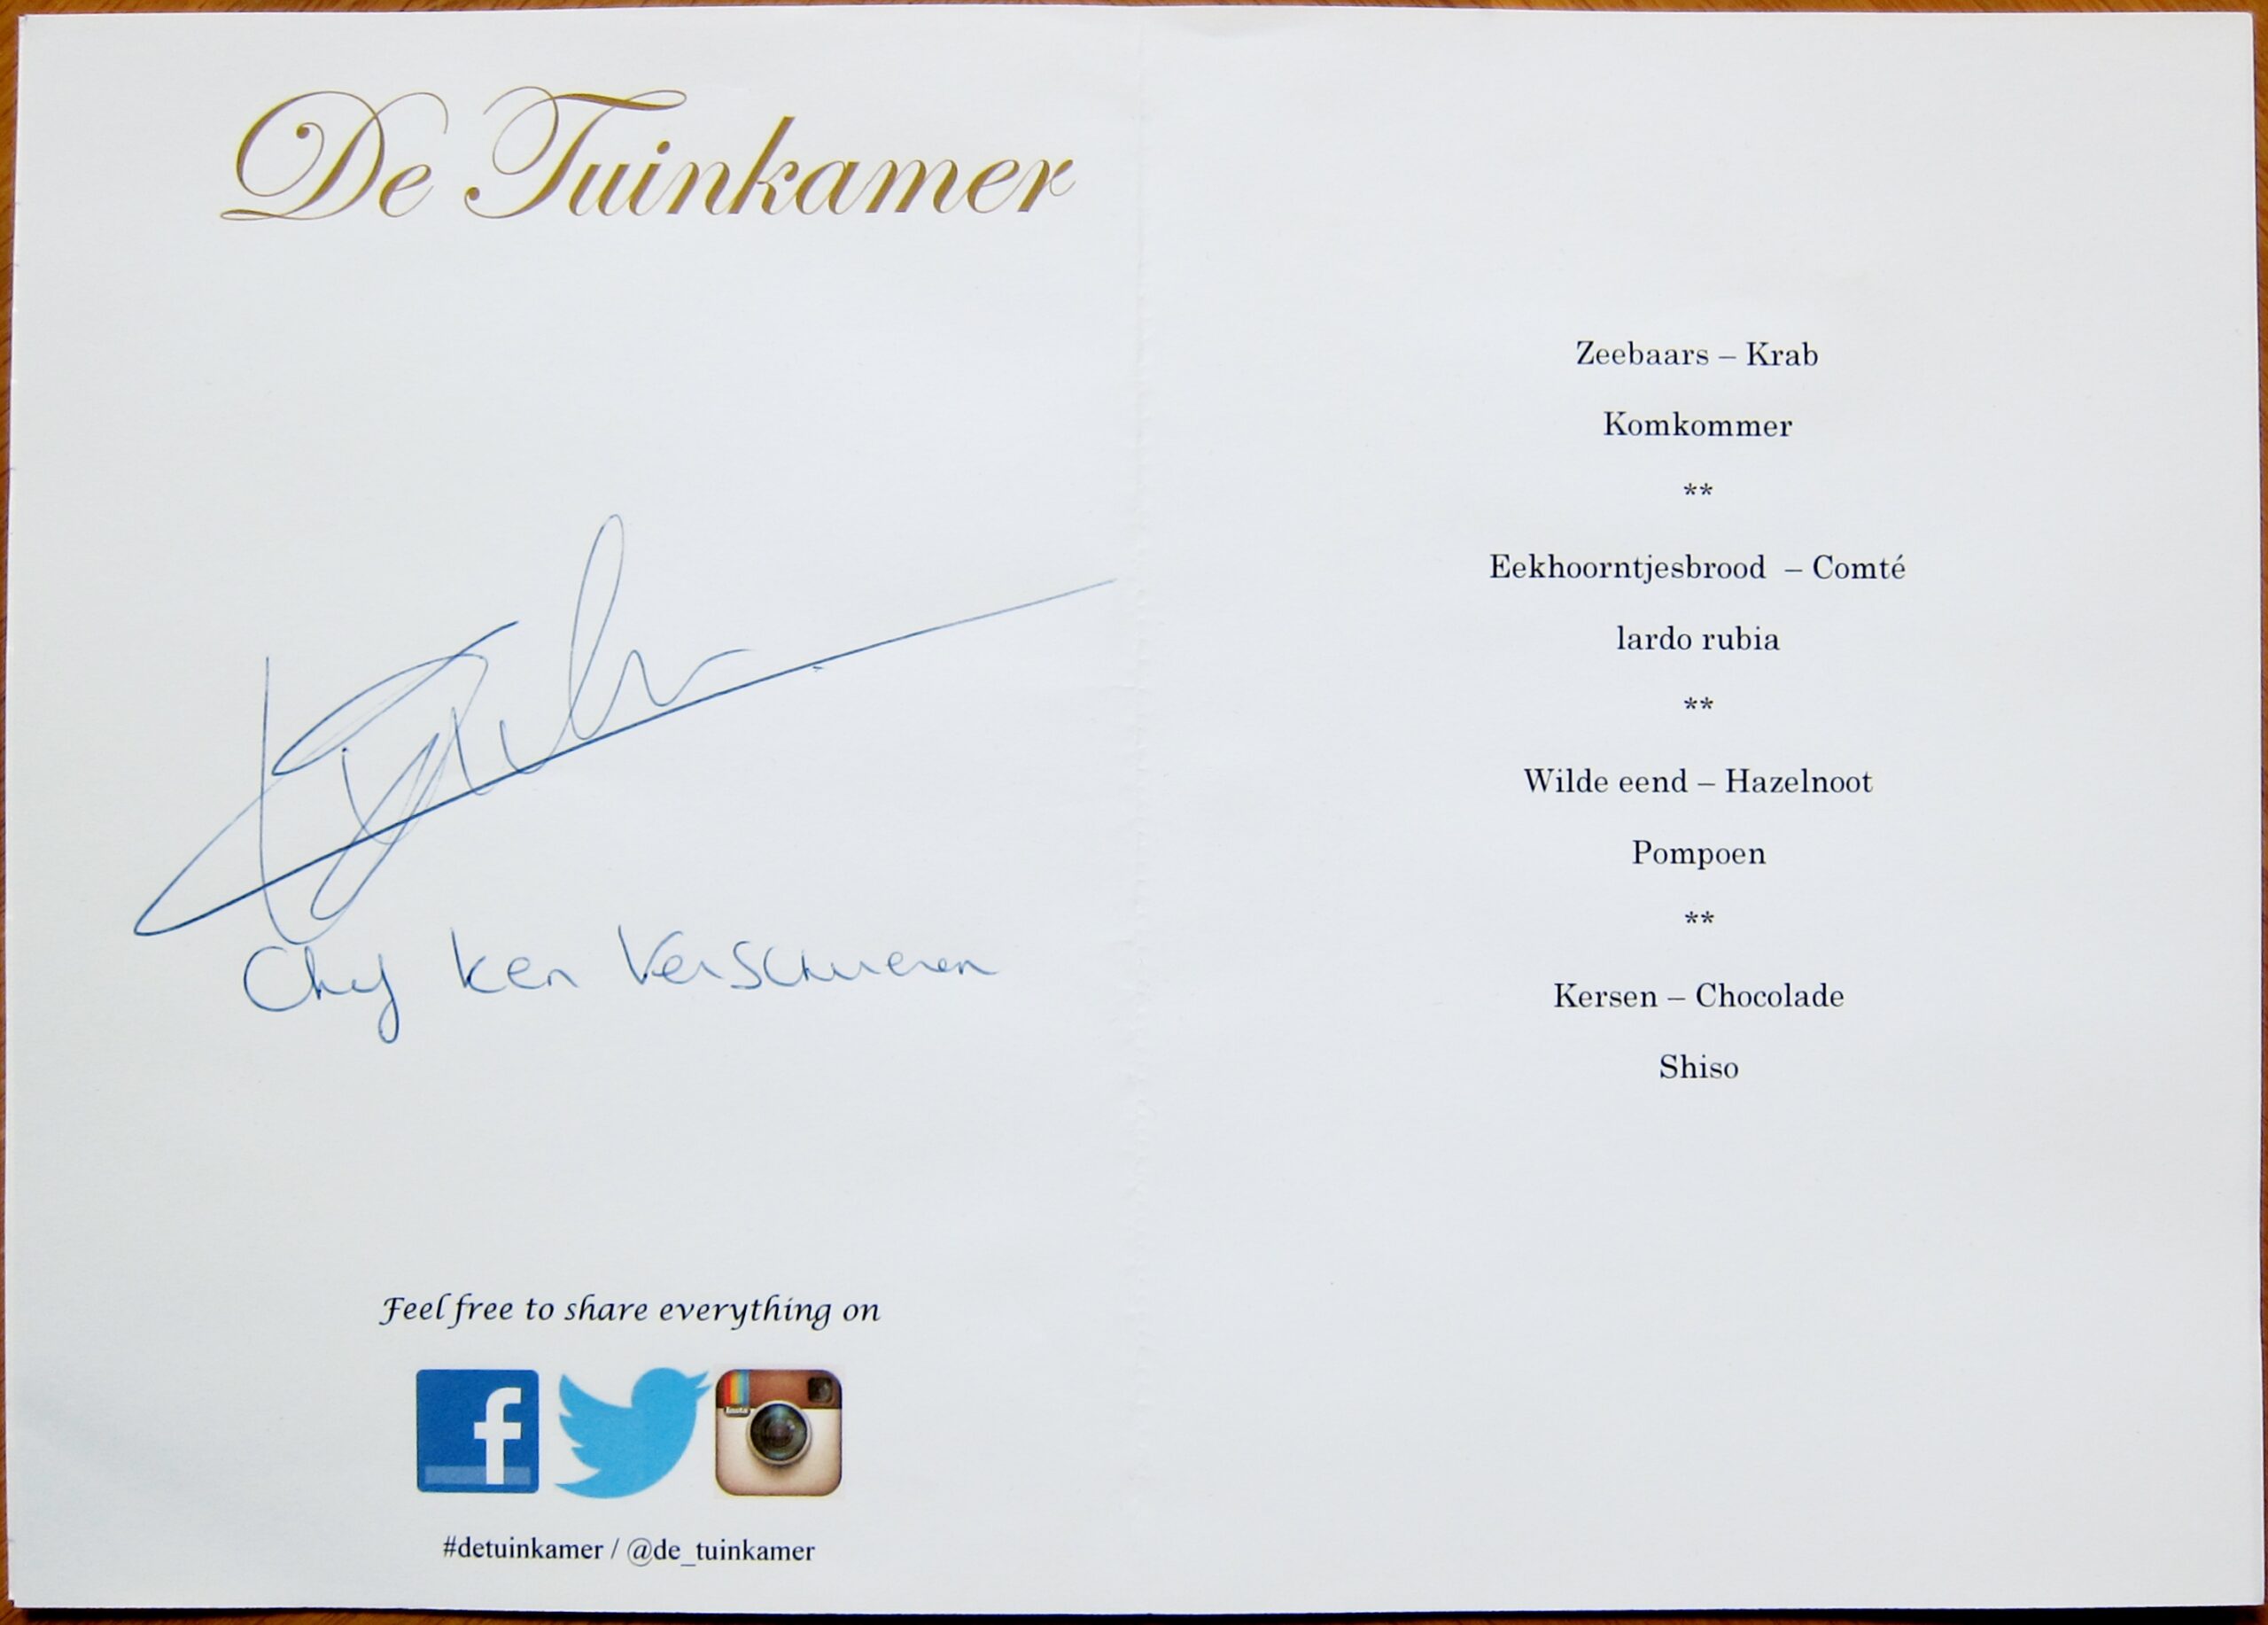 De Tuinkamer
Chef Ken Verschueren
Feel free to share everything on
#detuinkamer / @de_tuinkamer
Zeebaars – Krab
Komkommer
**
Eekhoorntjesbrood – Comté
lardo rubia
**
Wilde eend – Hazelnoot
Pompoen
**
Kersen – Chocolade
Shiso